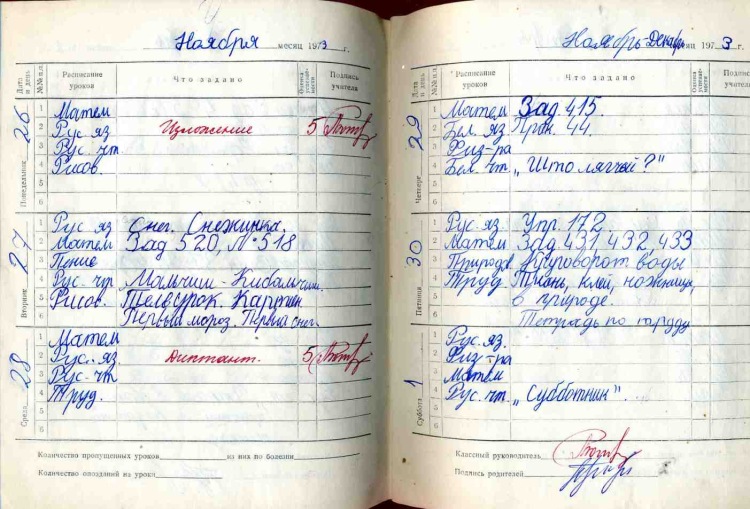 Ноября месяц 1973 г.
Дата и день №№ п.п. Расписание уроков Что задано Оценка успеваемости Подпись учителя
Понедельник 26
1 Матем
2 Рус. яз Изложение 5
3 Рус. чт.
4 Рисов.
5
6
Вторник 27
1 Рус яз Снег. Снежинка.
2 Матем Зад 520, № 518
3 Пение
4 Рус. чт Мальчиш-Кибальчиш.
5 Рисов.
6 Первый мороз. Первый снег.
Среда 28
1 Матем
2 Рус. яз Диктант. 5
3 Рус. чт
4 Труд.
5
6
Количество пропущенных уроков из них по болезни
Количество опозданий на уроки
Ноябрь-Декабрь 1973 г.
Дата и день №№ п.п. Расписание уроков Что задано Оценка успеваемости Подпись учителя
Четверг 29
1 Матем Зад 415.
2 Бел. яз Прак. 44.
3 Физ-ра
4 Бел. чт. „Што лягчэй?"
5
6
Пятница 30
1 Рус. яз Упр. 172.
2 Матем Зад 431, 432, 433
3 Природ. Круговорот воды
4 Труд Ткань, клей, ножницы,
5 в природе.
6 Тетрадь по труду
Суббота 1
1 Рус. яз.
2 Физ-ра
3 Матем
4 Рус. чт. „Субботник".
5
6
Классный руководитель
Подпись родителей